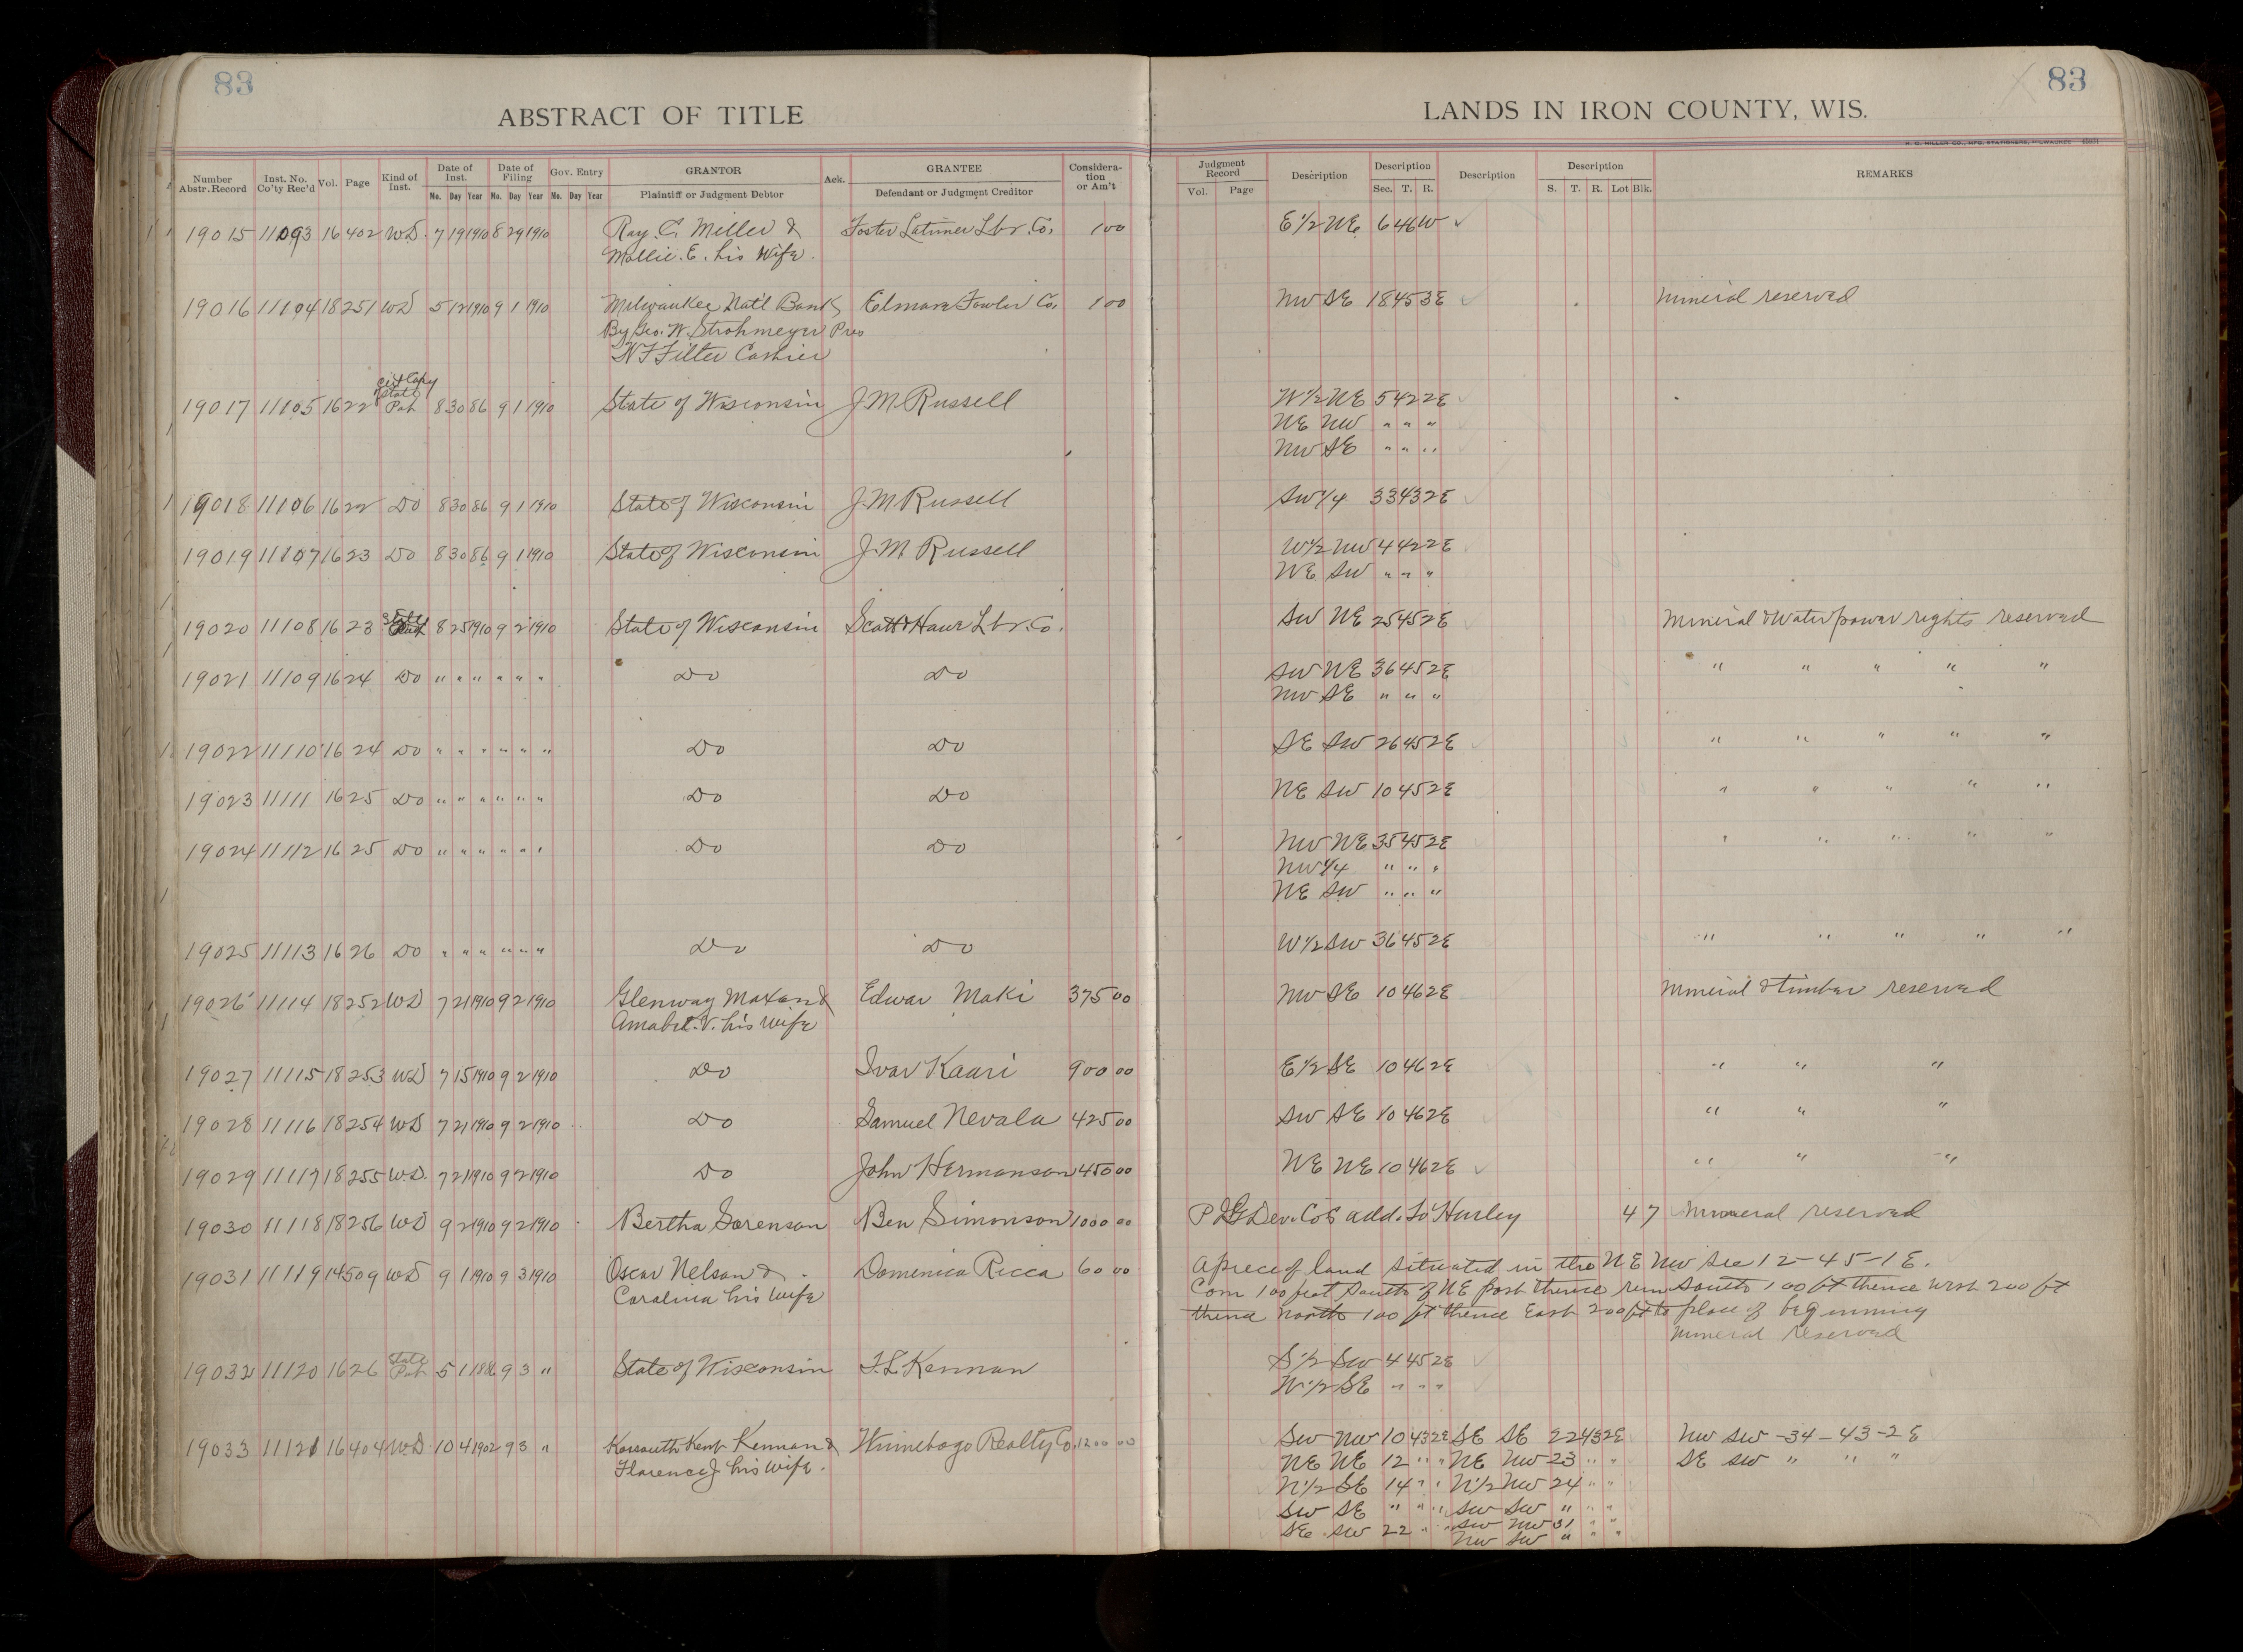 83
ABSTRACT OF TITLE
Number Abstr. Record Inst. No. Co'ty Rec'd Vol. Page Kind of Inst. Date of Inst. Date of Filing Gov. Entry GRANTOR Ack. GRANTEE Considera-tion or Am't
Mo. Day Year Mo. Day Year Mo. Day Year Plaintiff or Judgment Debtor Defendant or Judgment Creditor
19015 11093 16 402 WD. 7 19 1910 8 29 1910 Ray. C. Miller & Foster Latimer Lbr. Co. 1 00
Mollie. E. his Wife.
19016 11104 18 251 WD 5 12 1910 9 1 1910 Milwaukee Nat'l Bank Elmore Fowler Co. 1 00
By Geo. W. Strohmeyer Pres
W F Filter Cashier
Cert Copy
State
19017 11105 16 22 Pat 8 30 86 9 1 1910 State of Wisconsin J. M. Russell
19018 11106 16 22 Do 8 30 86 9 1 1910 State of Wisconsin J. M Russell
19019 11107 16 23 Do 8 30 86 9 1 1910 State of Wisconsin J. M. Russell
19020 11108 16 23 8 25 1910 9 2 1910 State of Wisconsin Scott & Howe Lbr. Co.
19021 11109 16 24 Do " " " " " " Do Do
19022 11110 16 24 Do " " " " " " Do Do
19023 11111 16 25 Do " " " " " " Do Do
19024 11112 16 25 Do " " " " " " Do Do
19025 11113 16 26 Do " " " " " " Do Do
19026 11114 18 252 WD 7 21 1910 9 2 1910 Glenway Maxon & Edwar Maki 375 00
Amabel. V. his Wife
19027 11115 18 253 WD 7 15 1910 9 2 1910 Do Ivar Kaari 900 00
19028 11116 18 254 WD 7 21 1910 9 2 1910 Do Samuel Nevala 425 00
19029 11117 18 255 W.D. 7 21 1910 9 2 1910 Do John Hermanson 450 00
19030 11118 18 256 WD 9 2 1910 9 2 1910 Bertha Sorenson Ben Simonson 1000 00
19031 11119 14 509 WD 9 1 1910 9 3 1910 Oscar Nelson & Domenica Ricca 60 00
Carolina his Wife
State
19032 11120 16 26 Pat 5 1 1886 9 3 " State of Wisconsin F. L. Kennan
19033 11121 16 404 WD 10 4 1902 9 3 " Kossouth Kent Kennan & Winnebogo Realty Co. 1200 00
Florence J his Wife.
83
LANDS IN IRON COUNTY, WIS.
H. C. MILLER CO., MFG. STATIONERS, MILWAUKEE
Judgment Record Description Description Description Description REMARKS
Vol. Page Sec. T. R. S. T. R. Lot Blk.
E 1/2 NE 6 46 W
NW SE 18 45 3E Mineral reserved
W 1/2 NE 5 42 2E
NE NW " " "
NW SE " " "
SW 1/4 33 43 2E
W 1/2 NW 4 42 2E
NE SW " " "
SW NE 25 45 2E Mineral & Water power rights reserved
SW NE 36 45 2E " " " " "
NW SE " " "
SE SW 26 45 2E " " " " "
NE SW 10 45 2E " " " " "
NW NE 35 45 2E " " " " "
NW 1/4 " " "
NE SW " " "
W 1/2 SW 36 45 2E " " " " "
NW SE 10 46 2E Mineral & timber reserved
E 1/2 SE 10 46 2E " " "
SW SE 10 46 2E " " "
NE NE 10 46 2E " " "
Dev. Co's add. to Hurley 4 7 Mineral reserved
A piece of land situated in the NE NW Sec 12-45-1E.
Com 100 feet South of NE post thence run South 100 ft thence West 200 ft
thence North 100 ft thence East 200 ft to place of beginning
Mineral reserved
S 1/2 SW 4 45 2E
W 1/2 SE " " "
SW NW 10 43 2E SE SE 22 43 2E NW SW -34-43-2E
NE NE 12 " " NE NW 23 " " SE SW " " "
N 1/2 SE 14 " " N 1/2 NW 24 " "
SW SE " " " SW SW " " "
SE SW 22 " " SW NW 31 " "
NW SW " " "